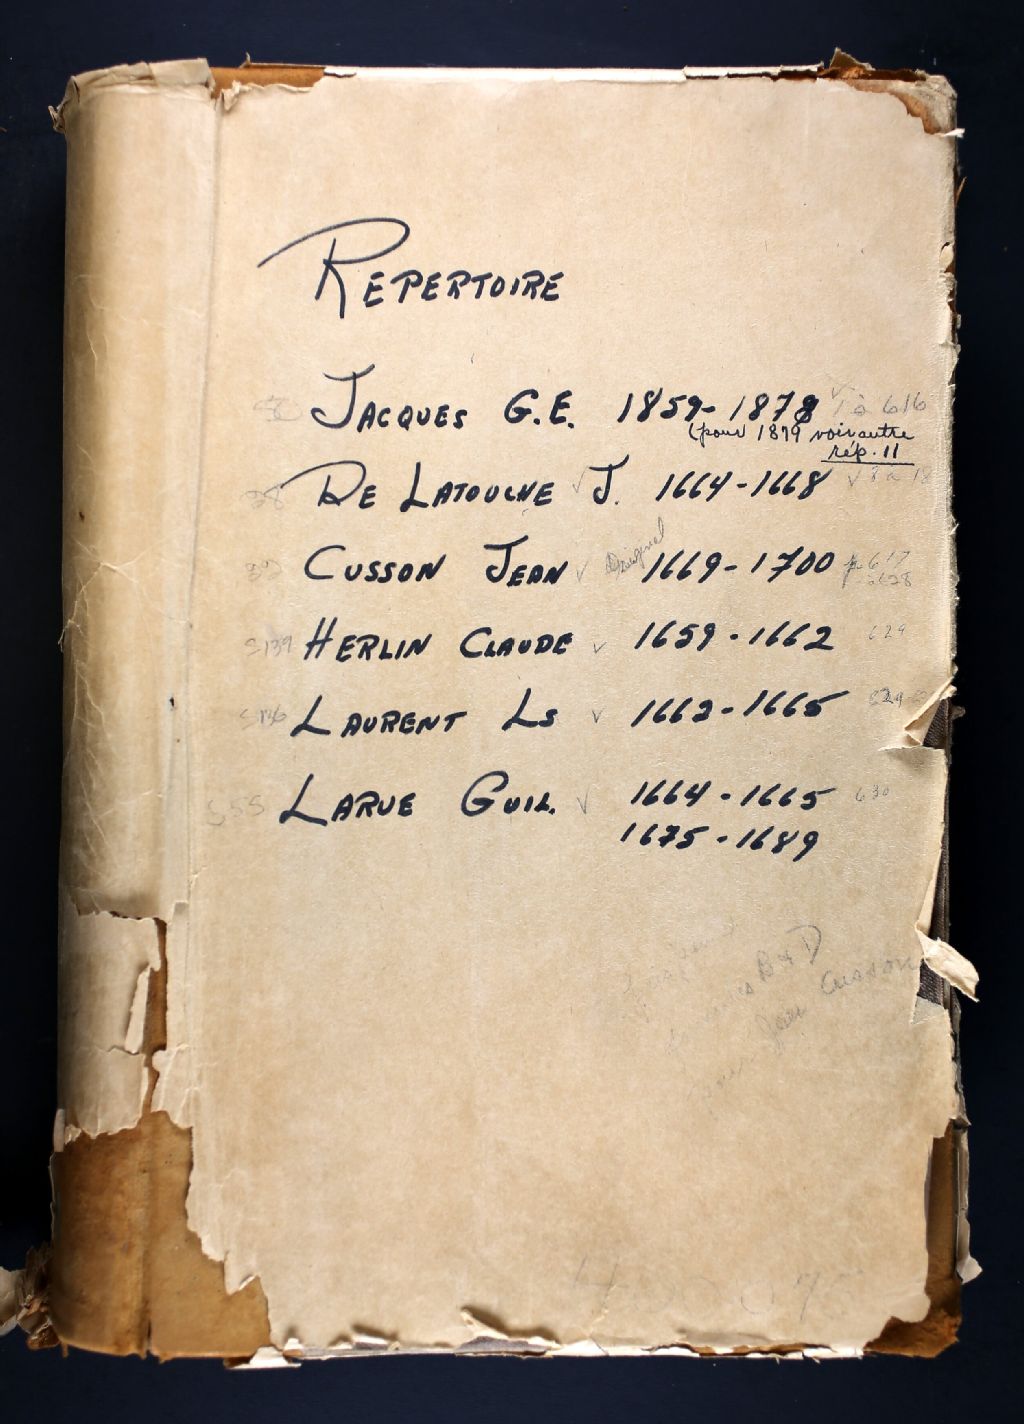 REPERTOIRE
JACQUES G.E. 1859-1878 1 à 616
(pour 1879 voir autre
rép. 11
38 DE LATOUCHE √ J. 1664-1668 √
CUSSON JEAN √ Original 1669-1700 p. 617
HERLIN CLAUDE √ 1659-1662 629
LAURENT LS √ 1662-1665
S55 LARUE GUIL. √ 1664-1665 630
1675-1689
B & D
Jean Cusson